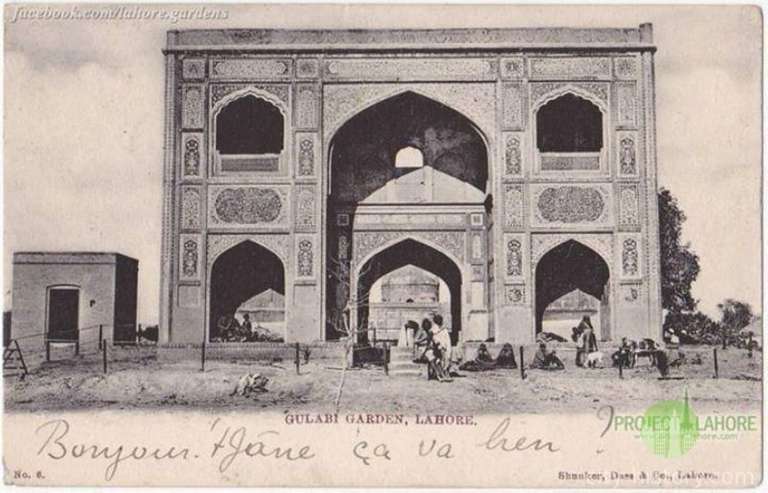 facebook.com/lahore.gardens
GULABI GARDEN, LAHORE.
Bonjour! Jane ça va bien ?
PROJECT LAHORE
No. 6.
Shunker, Dass & Co., Lahore.